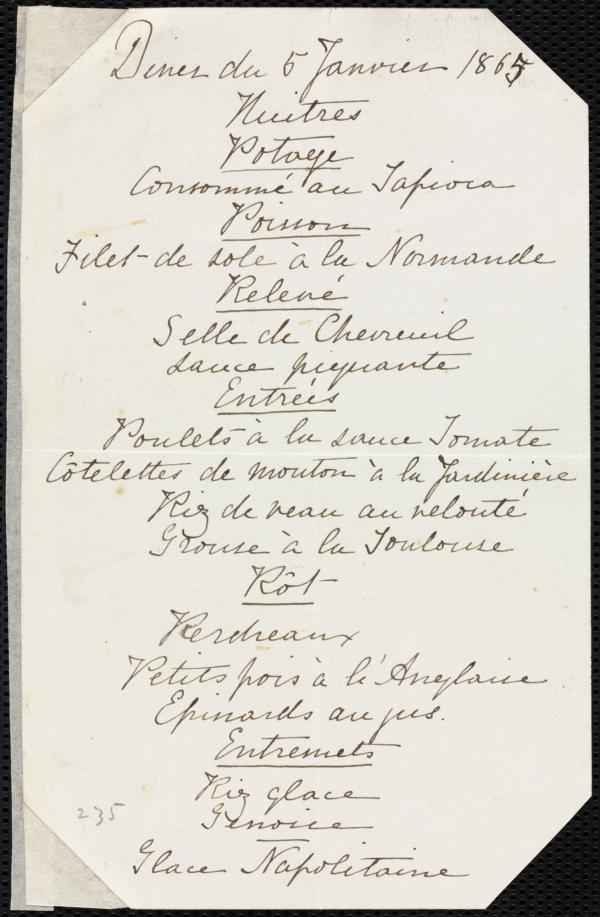 Diner du 5 Janvier 1865
Huitres
Potage
Consommé au Tapioca
Poisson
Filet de sole à la Normande
Relevé
Selle de Chevreuil
sauce piquante
Entrées
Poulets à la sauce Tomate
Côtelettes de mouton à la Jardinière
Riz de veau au velouté
Grouse à la Toulouse
Rôt
Perdreaux
Petits pois à l'Anglaise
Epinards au jus.
Entremets
Riz glace
Genoise
Glace Napolitaine
235